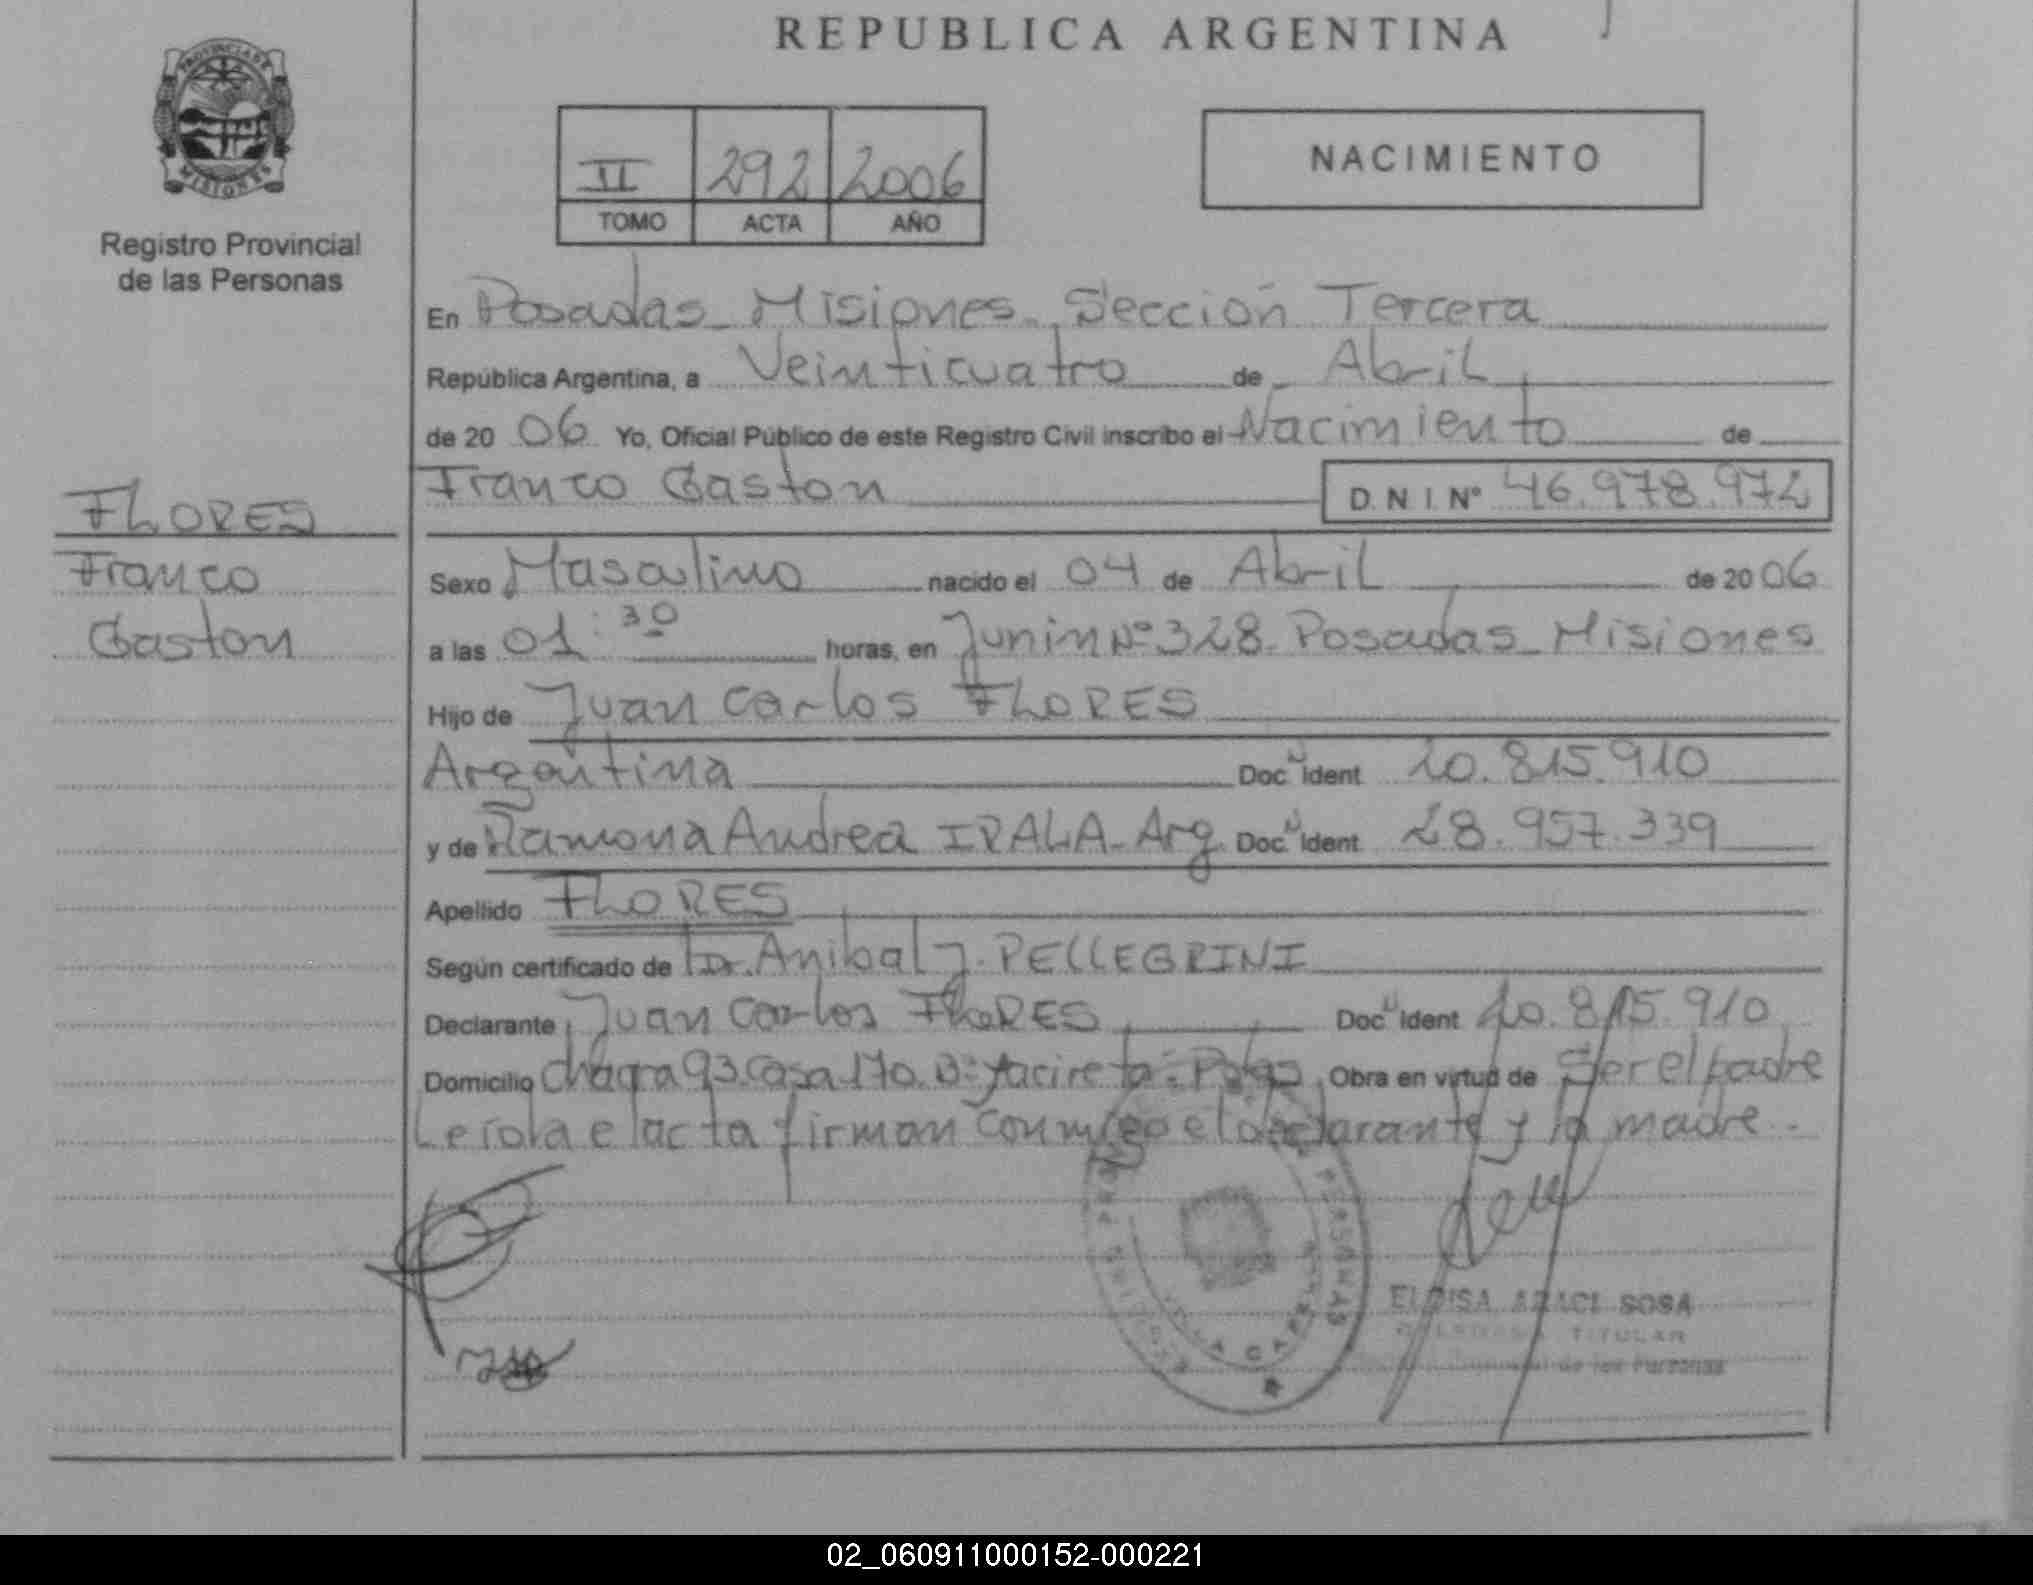 REPUBLICA ARGENTINA
PROVINCIA DE
MISIONES
Registro Provincial
de las Personas
II 292 2006
TOMO ACTA AÑO
NACIMIENTO
En Posadas Misiones Sección Tercera
República Argentina, a Veinticuatro de Abril
de 2006 Yo, Oficial Público de este Registro Civil inscribo el Nacimiento de
Franco Gaston D.N.I. Nº 46.978.972
FLORES
Franco
Gaston
Sexo Masculino nacido el 04 de Abril de 2006
a las 01:30 horas, en Junin Nº 328 Posadas Misiones
Hijo de Juan Carlos FLORES
Argentina Doc Ident 20.815.910
y de Ramona Andrea IRALA - Arg. Doc Ident 28.957.339
Apellido FLORES
Según certificado de Dr. Anibal J. PELLEGRINI
Declarante Juan Carlos FLORES Doc Ident 20.815.910
Domicilio chacra 93 casa 170 Bº Yacireta - Pdas Obra en virtud de Ser el padre
Leída el acta firman conmigo el declarante y la madre.
PERSONAS
ELOISA ARACI SOSA
TITULAR
de las Personas
02_060911000152-000221